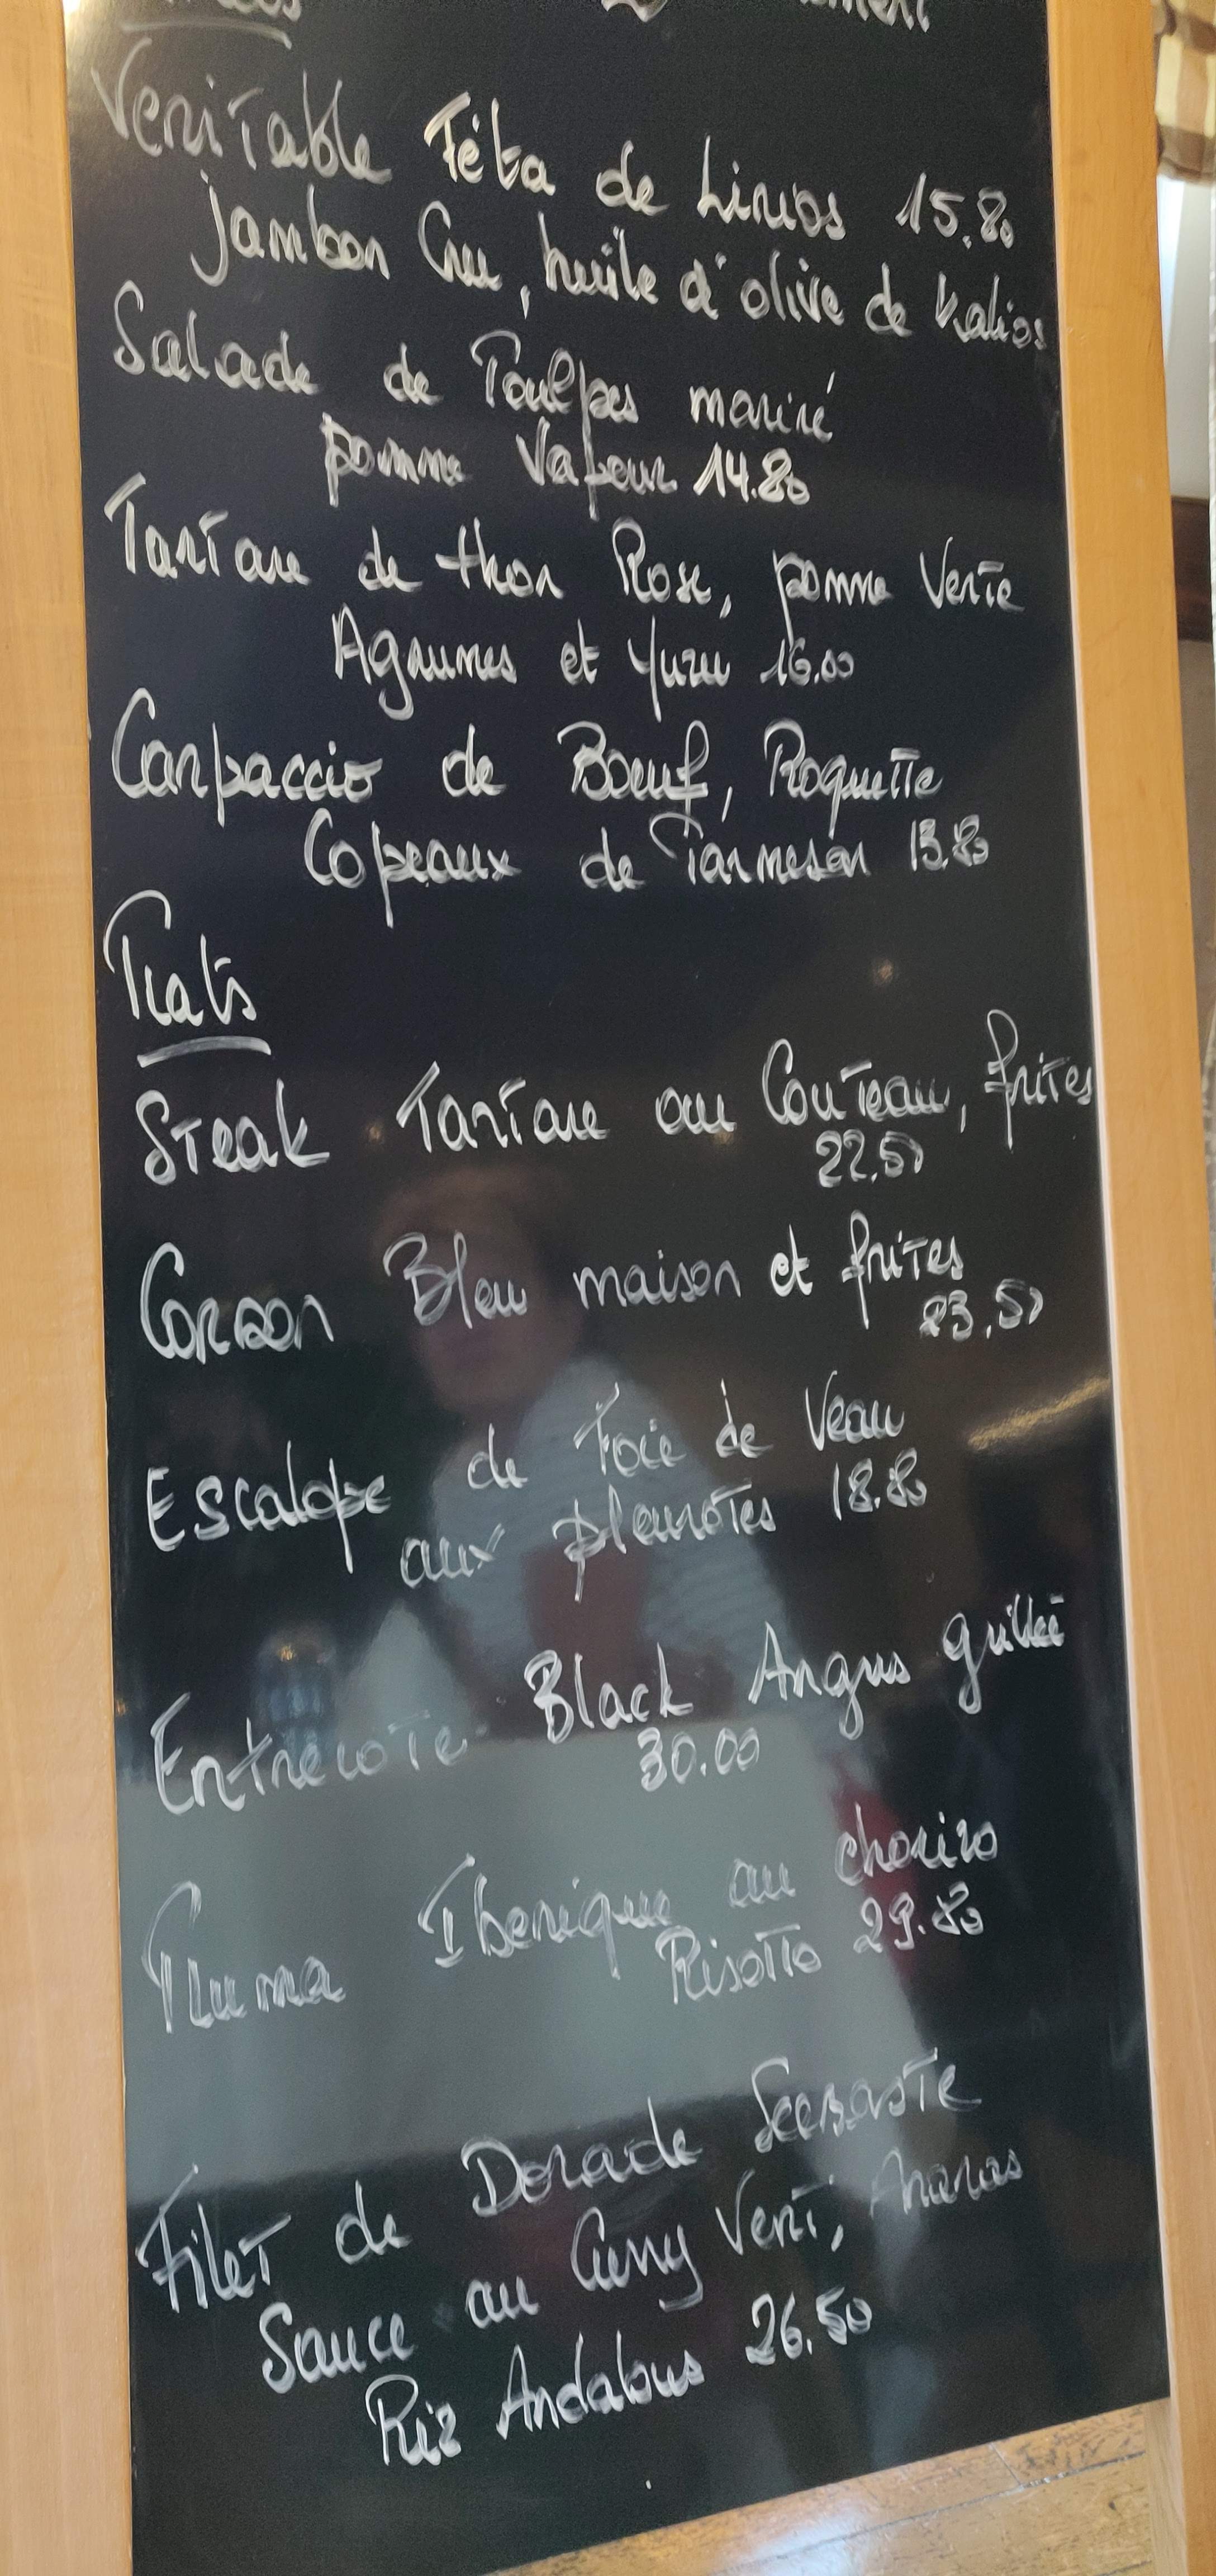 Veritable Féta de Linios 15.80
Jambon Cru, huile d'olive de Kalios
Salade de Poulpes mariné
pomme Vapeur 14.80
Tartare de thon Rose, pomme Verte
Agrumes et Yuzu 16.00
Carpaccio de Boeuf, Roquette
Copeaux de Parmesan 15.80
Plats
Steak Tartare au Couteau, frites
22.50
Cordon Bleu maison et frites
23.50
Escalope de Foie de Veau
aux pleurotes 18.80
Entrecote Black Angus grillée
30.00
Pluma Iberique au chorizo
Risotto 29.80
Filet de Dorade Seebaste
Sauce au Curry Vert, Ananas
Riz Andalous 26.50